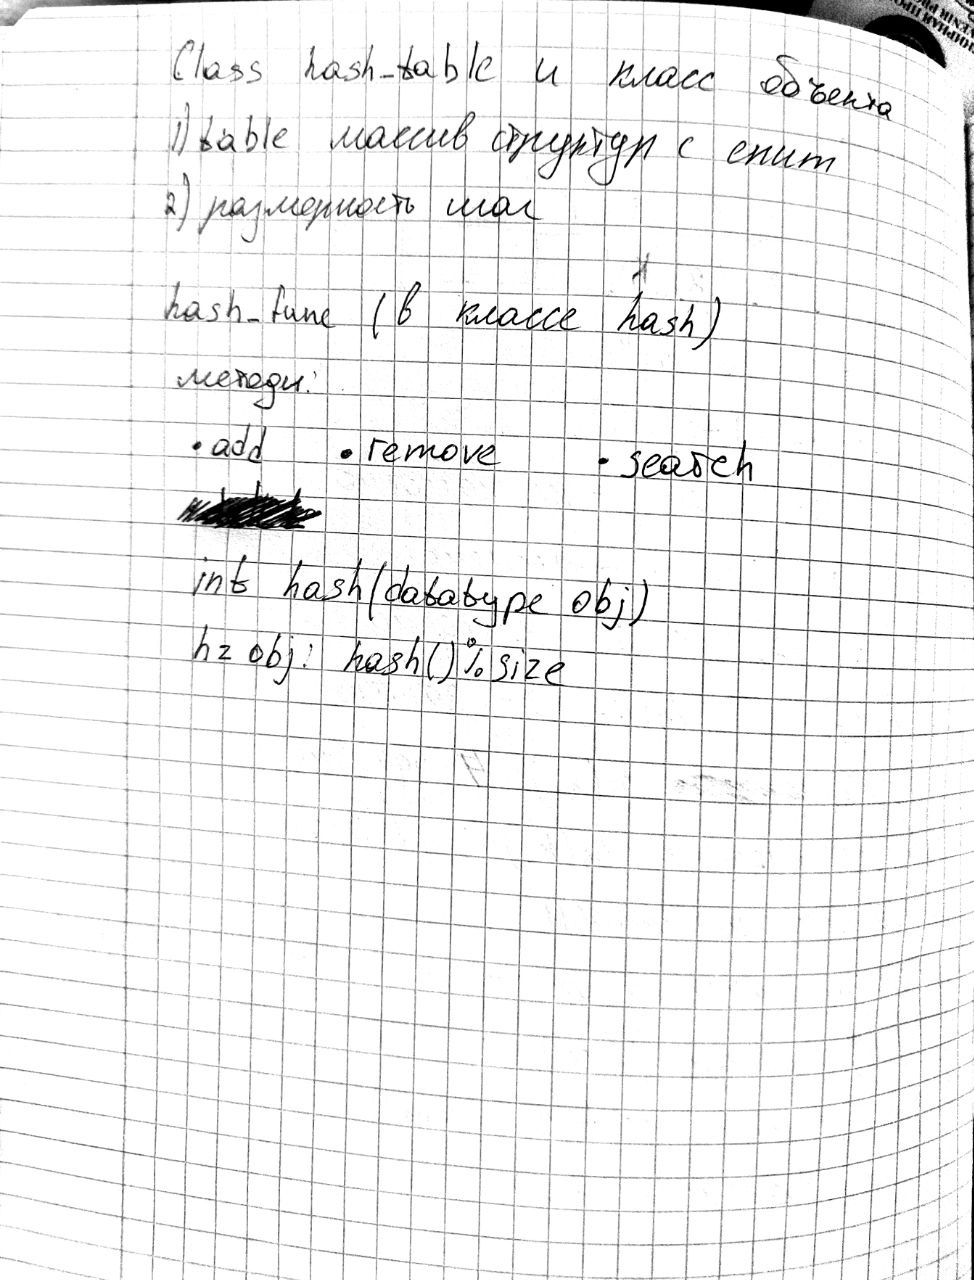 Class hash-table и класс объекта
1) table массив структур с
2) размерность шаг
hash-func (в классе hash)
методы:
• add • remove • search
int hash(datatype obj)
h = obj. hash() % size